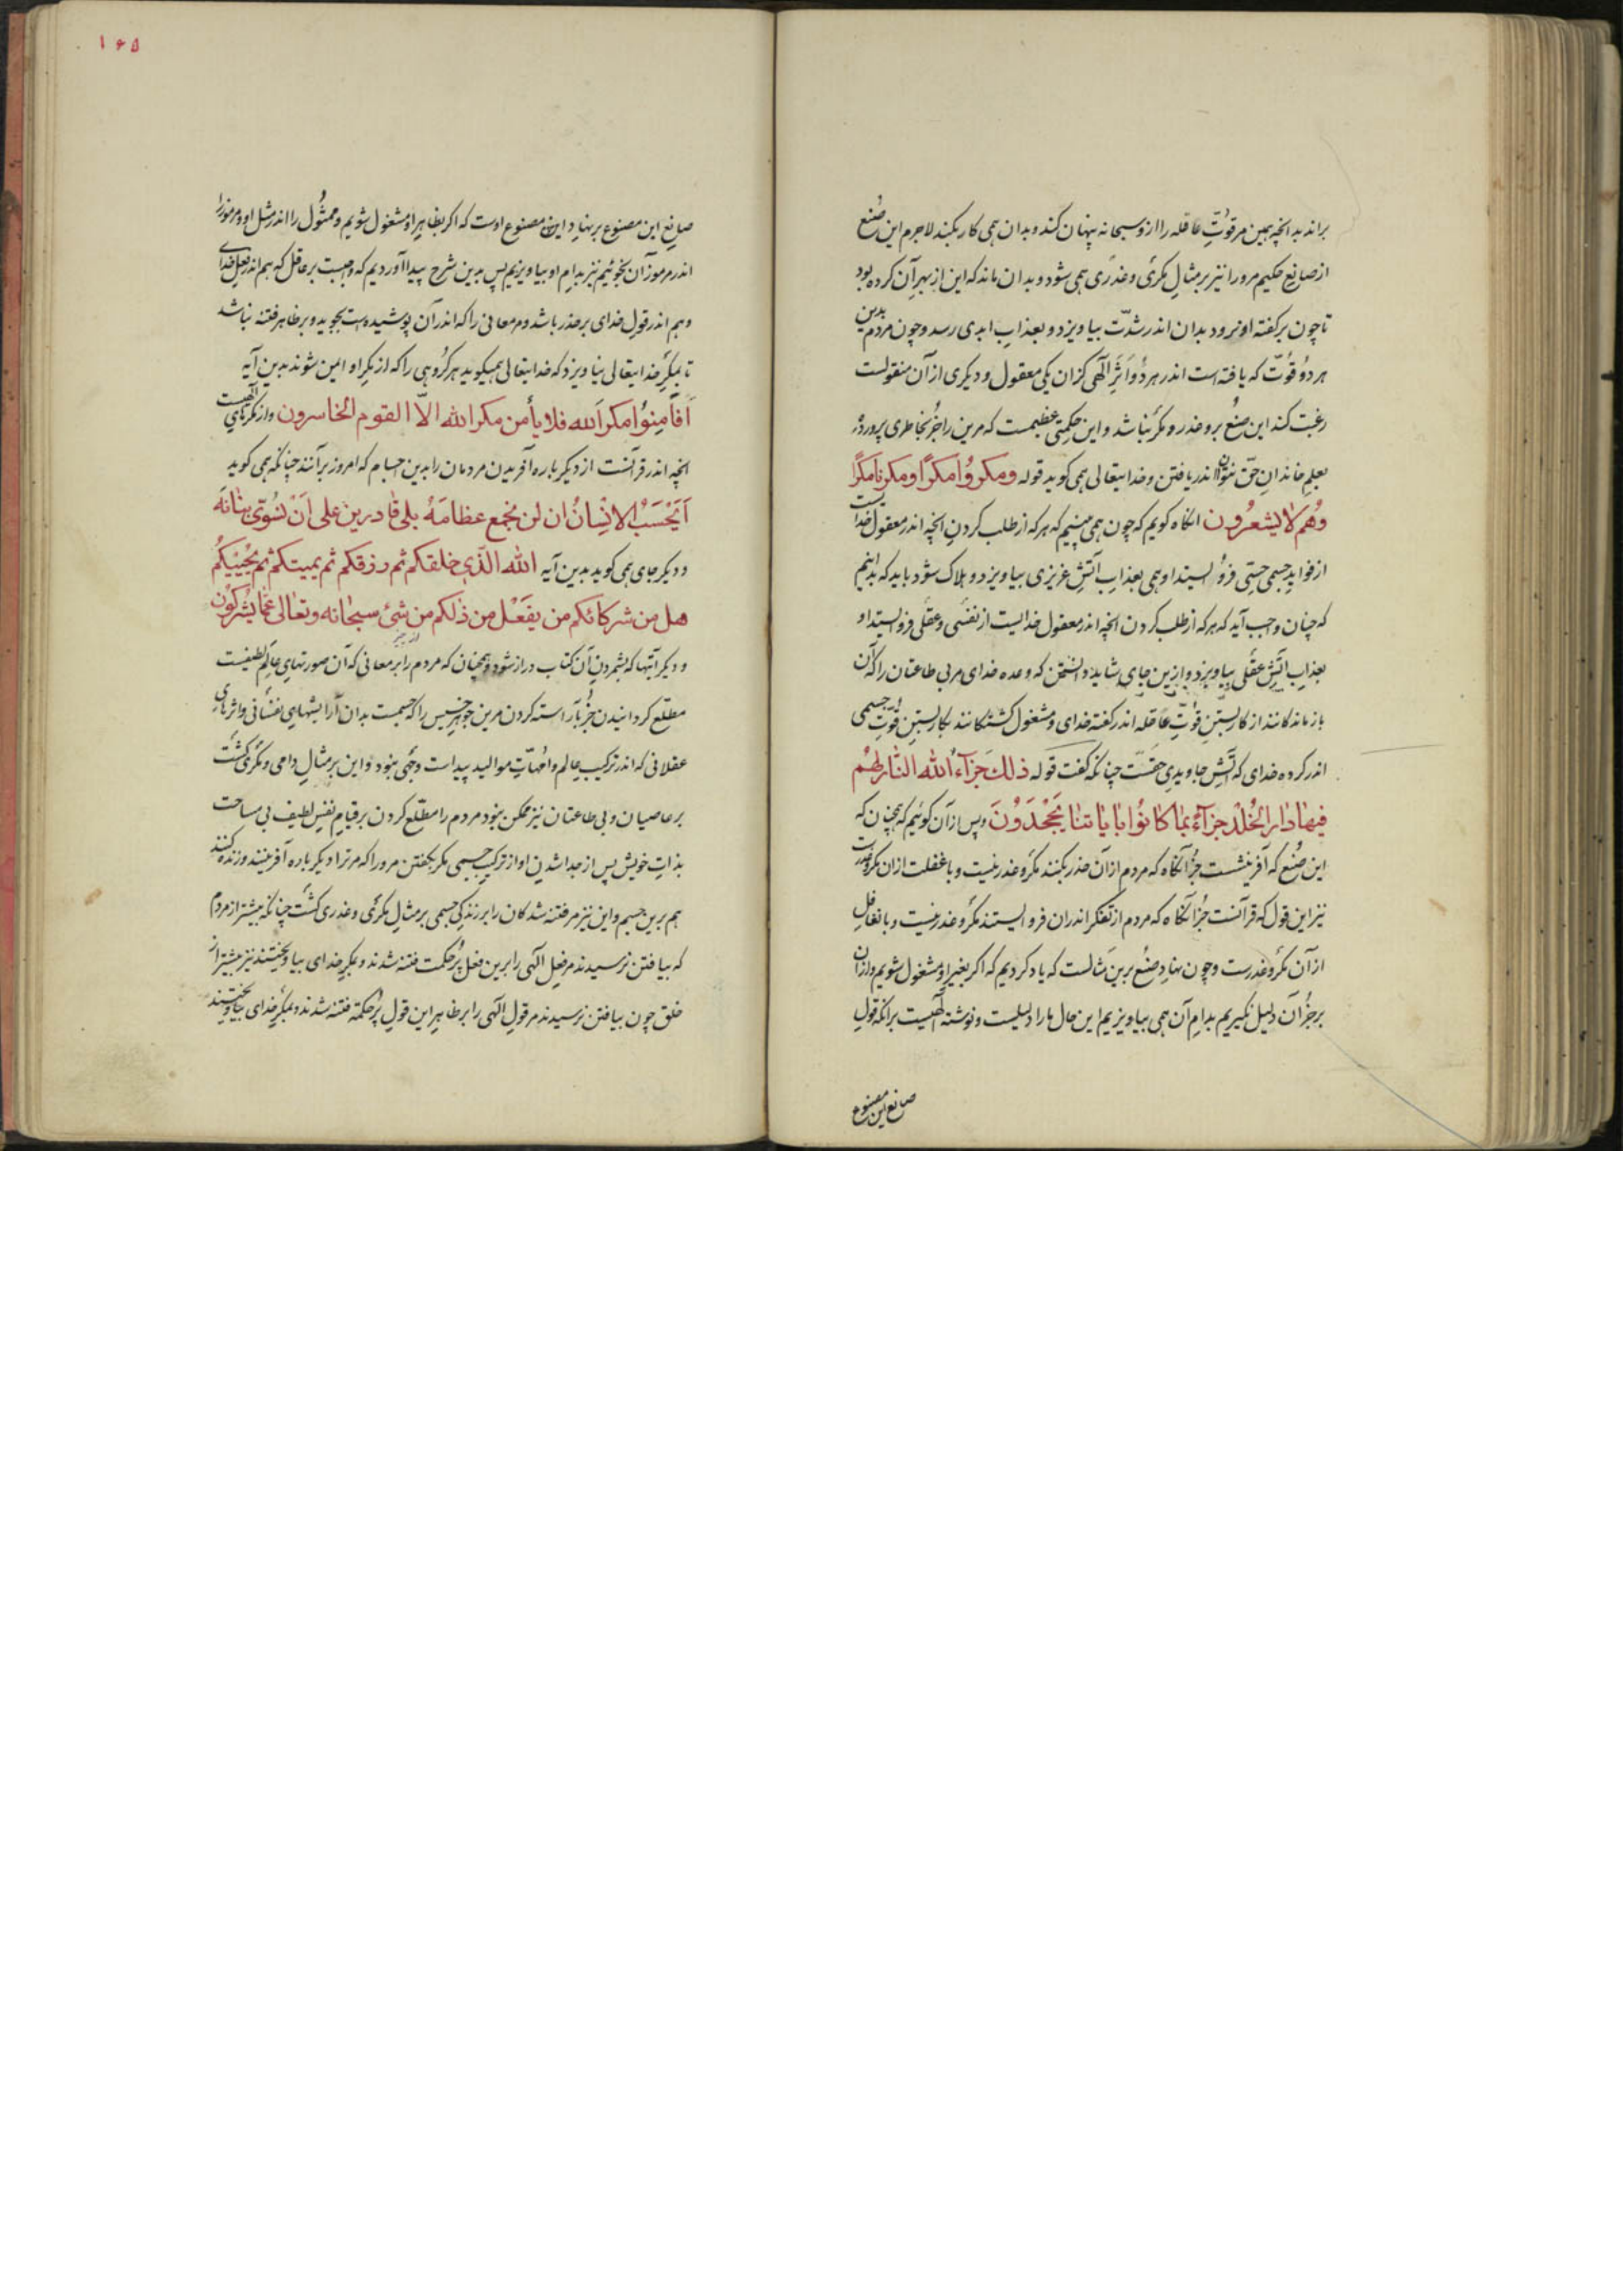 براند بدانچه بهین مر قوّتِ عاقله را ازو سبحانه پنهان کند و بدان همی کار نکند لاجرم این صُنع
از صانعِ حکیم مرورا نیز بر مثالِ مکری و غدری همی شود و بدان ماند که این از بهرِ آن کرده بود
تا چون بر گفته او نرود بدان اندر شدّت بیاویزد و بعذابِ ابدی رسد و چون مردم بدین
هر دو قوّت که یافته است اندر هر دو اَثَرِ الٓهی کزان یکی معقول و دیگری از آن منقولست
رغبت کند این صُنع برو غدر و مکر نباشد و این حکمتی عظیمست که مرین را جز بخاطری پرورده
بعلمِ خاندانِ حقّ نتوان اندر یافتن و خدایتعالی همی کوید قوله ومکروُا مکرًا ومکرنا مکرًا
وهُم لا یشعرُون انکاه کویم که چون همی بینیم که هر که از طلب کردنِ انچه اندر معقولِ خدایست
از فوایدِ جسمی حسّی فرو ایستد او همی بعذابِ آتشِ غریزی بیاویزد و هلاک شود باید که بدانیم
که چنان واجب آید که هر که از طلب کردن انچه اندر معقول خدایست از نفسی و عقلی فرو ایستد او
بعذابِ آتشِ عقلی بیاویزد و ازین جای شاید دانستن که وعده خدای مر بی طاعتان را که آن
بازماندکانند از کار بستنِ قوّتِ عاقله اندر گفته خدای و مشغول کشتکانند بکار بستنِ قوّتِ جسمی
اندر کرده خدای که آتشِ جاویدی حقّست چنانکه کفت قوله ذلك جَزآءُ اُلله النّار لهُم
فیها دار الخُلد جزآءً بما کانوُا بایاتنا یَجْحَدوُنَ و پس از آن کوئیم که همچنان که
این صُنع که آفرینشست جز آنگاه که مردم ازان حذر نکنند مکر و غدر نیست و با غفلت ازان مکر و غدرست
نیز این قول که قرآنست جز آنگاه که مردم از تفکر اندران فرو ایستند مکر و غدر نیست و با تغافلِ
از آن مکر و غدرست و چون نهادِ صُنع برین مثالست که یاد کردیم که اگر بغیر او مشغول شویم و ازان
بر جز آن دلیل نگیریم بدامِ آن همی بیاویزیم این حال ما را دلیلست و نوشته الٓهیست بر انکه قولِ
صانع این مصنوع
۱۶۵
صانعِ این مصنوع بر نهادِ این مصنوع اوست که اکر بظاهرِ او مشغول شویم و ممثُول را اندر مثل او و مرموز را
اندر مرموز آن نجوئیم نیز بدامِ او بیاویزیم پس بدین شرح پیدا آوردیم که واجبست بر عاقل که هم اندر فعلِ خدای
و هم اندر قولِ خدای بر حذر باشد و مر معانی را که اندر آن پوشیده است بجوید و بر ظاهر فتنه نباشد
تا بمکرِ خدایتعالی نیاویزد که خدایتعالی همیکوید هر کروُهی را که از مکرِ او ایمن شوند بدین آیه
اَفاَمِنوُا مکرَ اَلله فلا یأمن مکر الله الاّ القوم الخاسرون و از مکرهای الٓهیست
انچه اندر قرآنست از دیکر باره آفریدن مردمان را بدین اجسام که امروز بر آنند چنانکه همی کوید
اَیَحْسَبُ الاِنْسانُ ان لن نجمع عظامَهُ بلی قادرین علی اَنْ نُسَوّیَ بَنانَهُ
و دیکر جای همی کوید بدین آیه الله الّذی خلقکم ثم رزقکم ثم یمیتکم ثم یُحْییکُم
هل من شرکائکم من یفعَل من ذلکم من شیٔ سبحانه وتعالی عمّا یشرکون
و دیکر آیتها که بشمردنِ آن کتاب دراز شود و همچنان که مردم را بر معانی که آن صورتهای عالمِ لطیفست
مطّلع کردانیدن جز بآراسته کردن مرین جوهرِ خسیس را که جسمست بدان آرایشهای نفسانی و اثرهای
عقلانی که اندر ترکیبِ عالم و امّهاتِ موالید پیداست وجهی نبود و این بر مثالِ دامی و مکری کشت
بر عاصیان و بی طاعتان نیز ممکن نبود مردم را مطّلع کردن بر قیامِ نفسِ لطیف بی مساحت
بذاتِ خویش پس از جدا شدنِ او از ترکیبِ جسمی مکر بکفتن مرورا که مر ترا دیکر باره آفرینند و زنده کنند
هم برین جسم و این نیز مر فتنه شدکان را بر زندگی جسمی بر مثالِ مکری و غدری کشت چنانکه بیشتر از مردم
که بیافتن نرسیدند مر فعلِ الٓهی را برین فعلِ پُر حکمت فتنه شدند و بمکرِ خدای بیاویختند نیز بیشتر از
خلق چون بیافتن نرسیدند مر قولِ الٓهی را بر ظاهرِ این قولِ پُر حکمة فتنه شدند و بمکرِ خدای بیاویختند